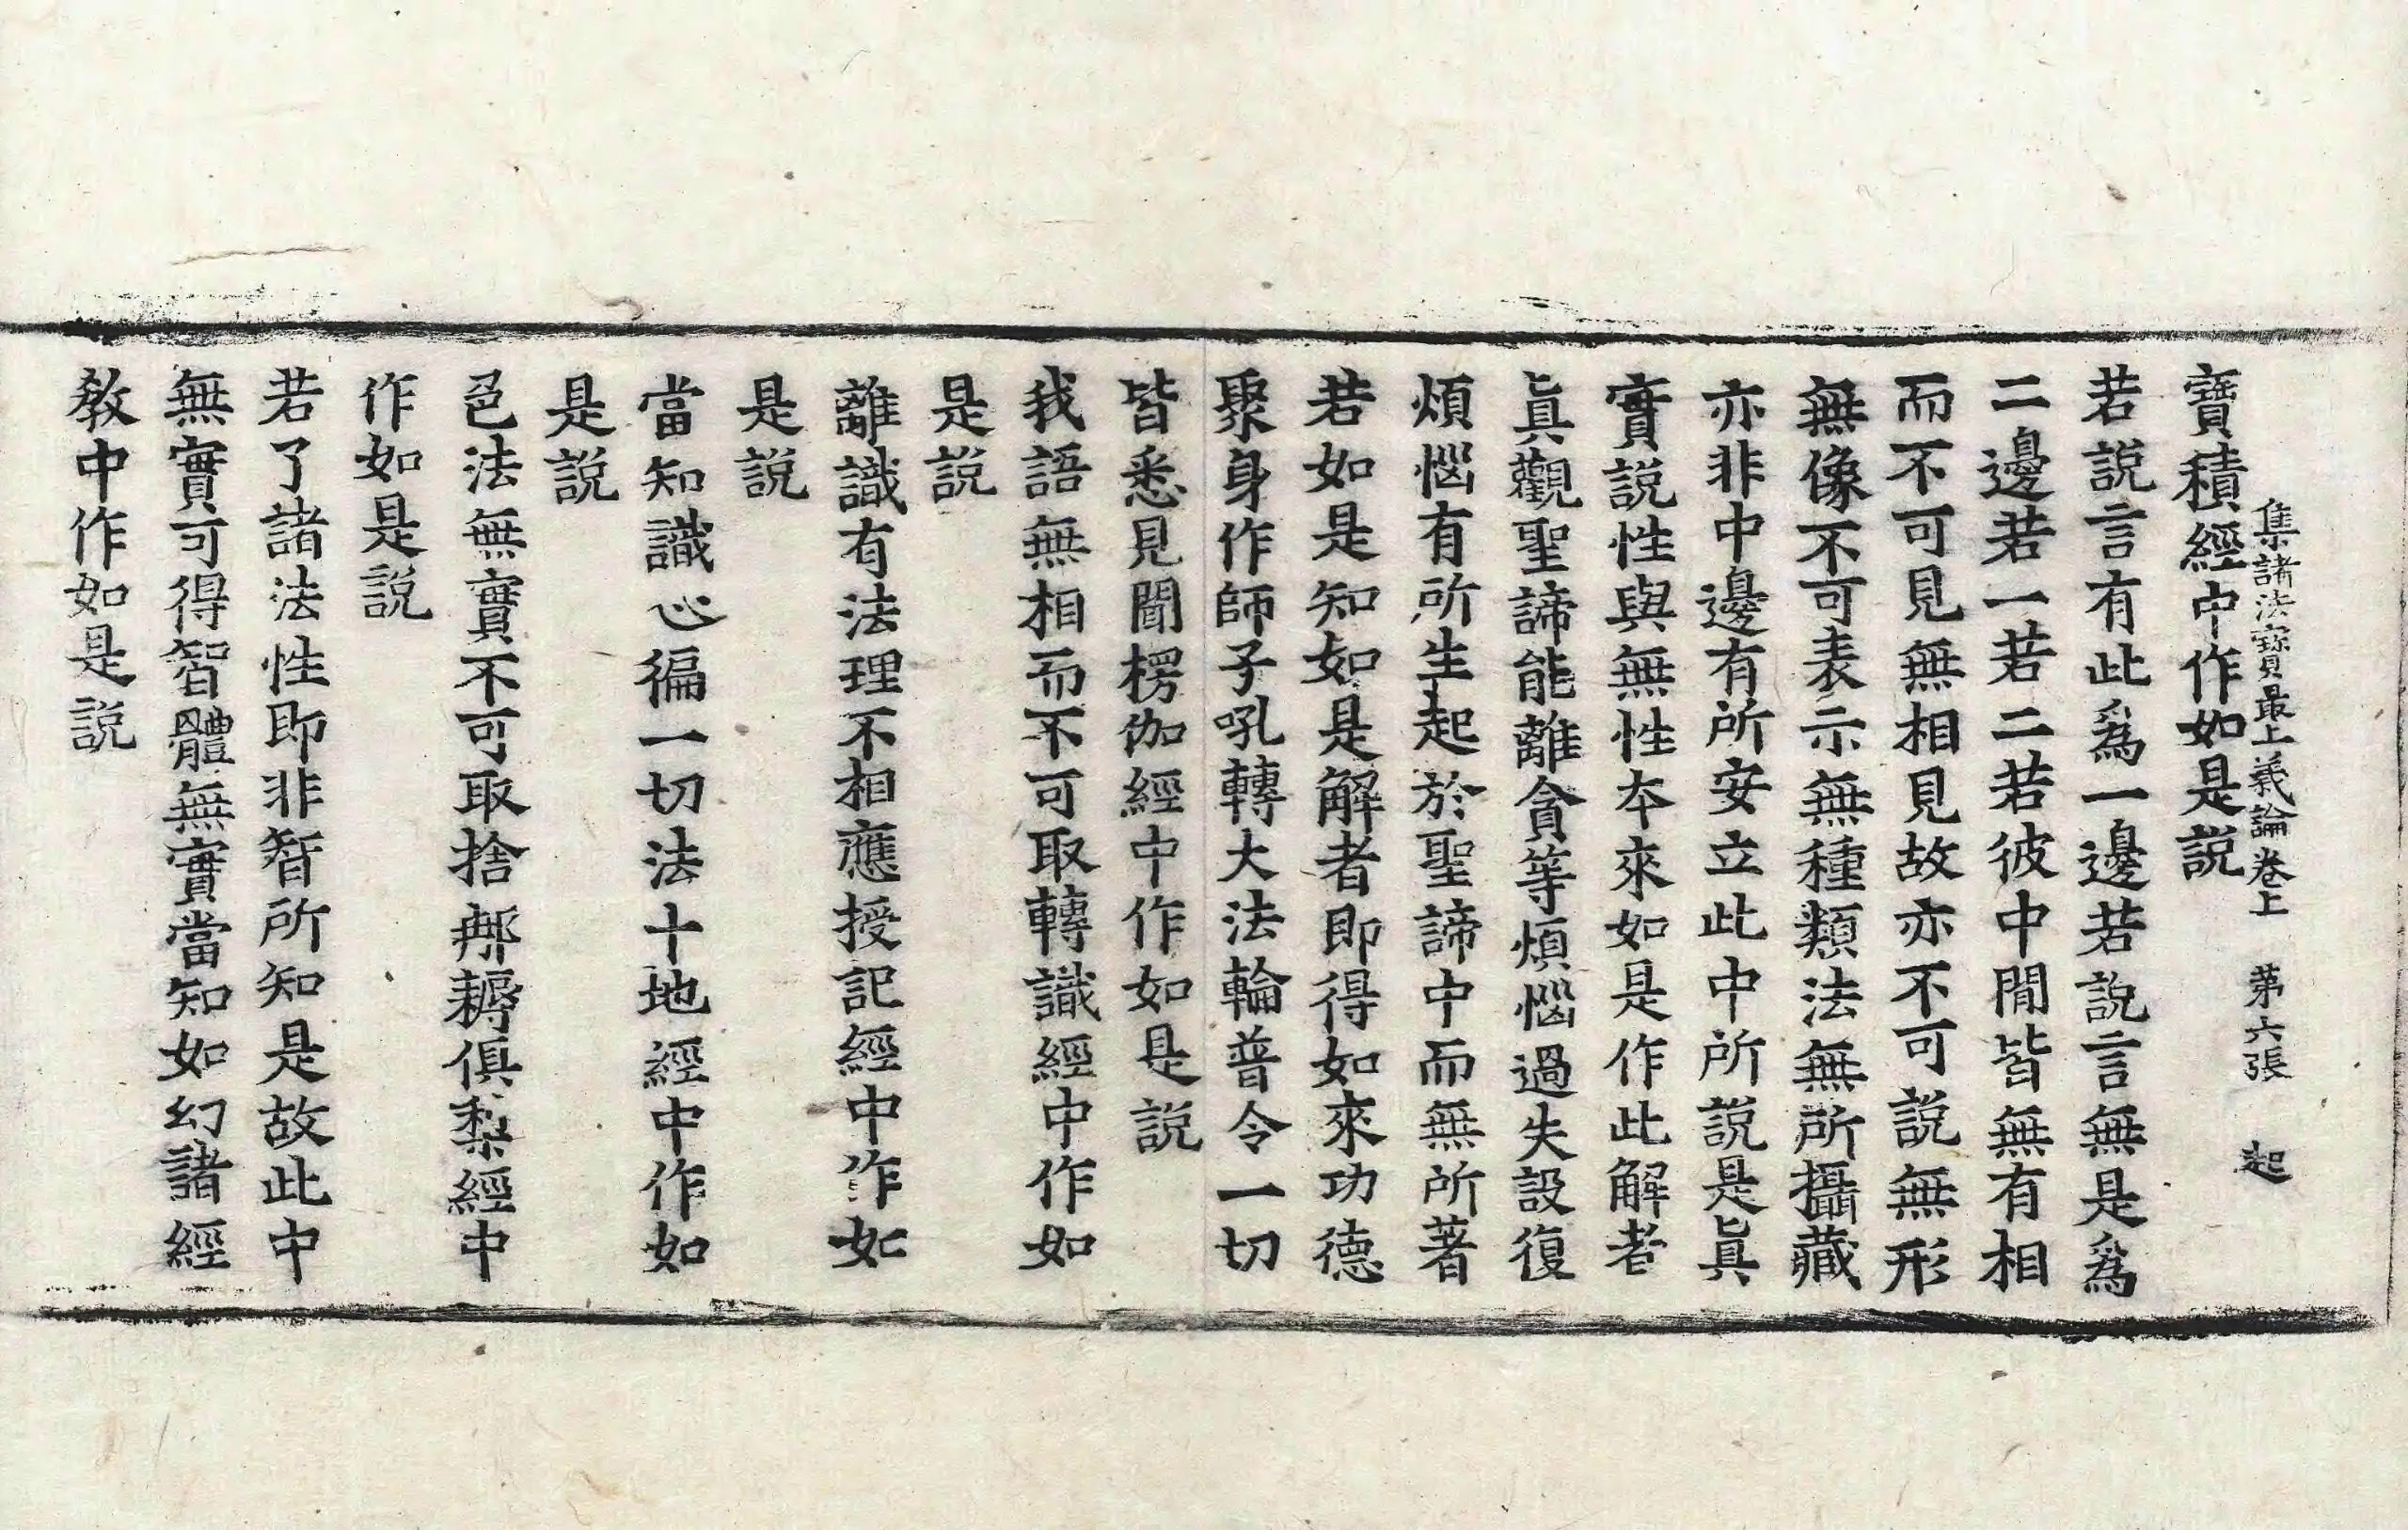 集諸法寶最上義論卷上 第六張 起
寶積經中作如是說
若說言有此爲一邊若說言無是爲
二邊若一若二若彼中閒皆無有相
而不可見無相見故亦不可說無形
無像不可表示無種類法無所攝藏
亦非中邊有所安立此中所說是眞
實說性與無性本來如是作此解者
眞觀聖諦能離貪等煩惱過失設復
煩惱有所生起於聖諦中而無所著
若如是知如是解者即得如來功德
聚身作師子吼轉大法輪普令一切
皆悉見聞楞伽經中作如是說
我語無相而不可取轉識經中作如
是說
離識有法理不相應授記經中作如
是說
當知識心徧一切法十地經中作如
是說
色法無實不可取捨㖠耨俱梨經中
作如是說
若了諸法性即非智所知是故此中
無實可得智體無實當知如幻諸經
教中作如是說